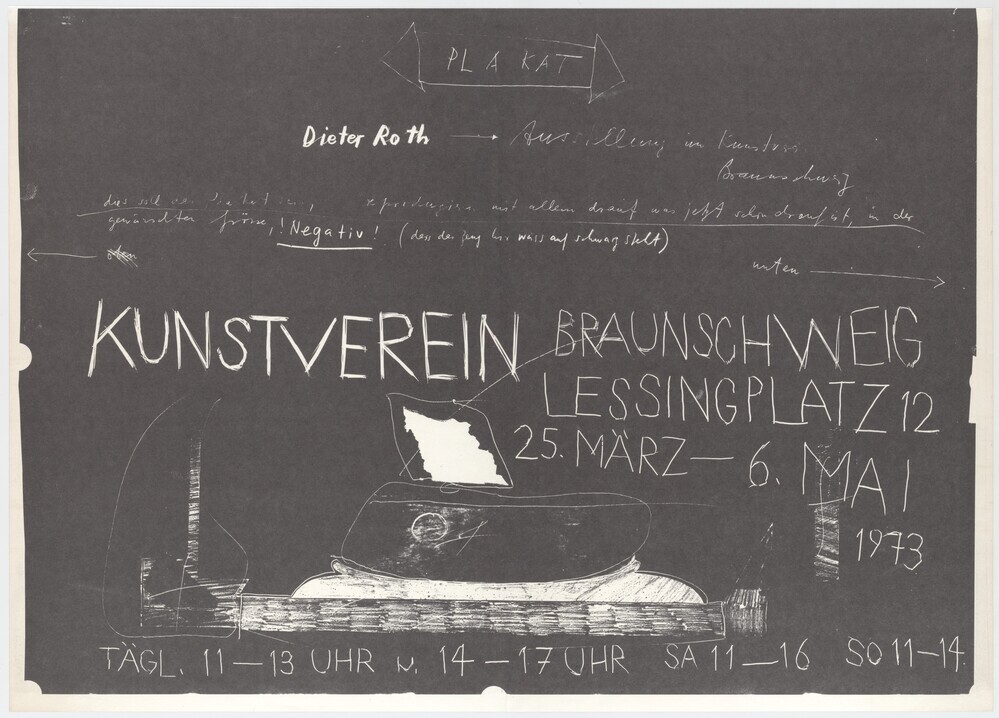 PLAKAT
Dieter Roth → Ausstellung im Kunstver.
Braunschweig
dies soll das Plakat sein, reproduzieren mit allem drauf was jetzt schon drauf ist, in der
gewünschten Grösse, ! Negativ! (dass das zeug hier weiss auf schwarz steht)
← oben
unten →
KUNSTVEREIN BRAUNSCHWEIG
LESSINGPLATZ 12
25. MÄRZ — 6. MAI
1973
TÄGL. 11—13 UHR u. 14—17 UHR SA 11—16 SO 11—14